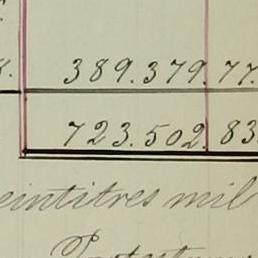 389.379.77.
723.502 83
eintitres mil